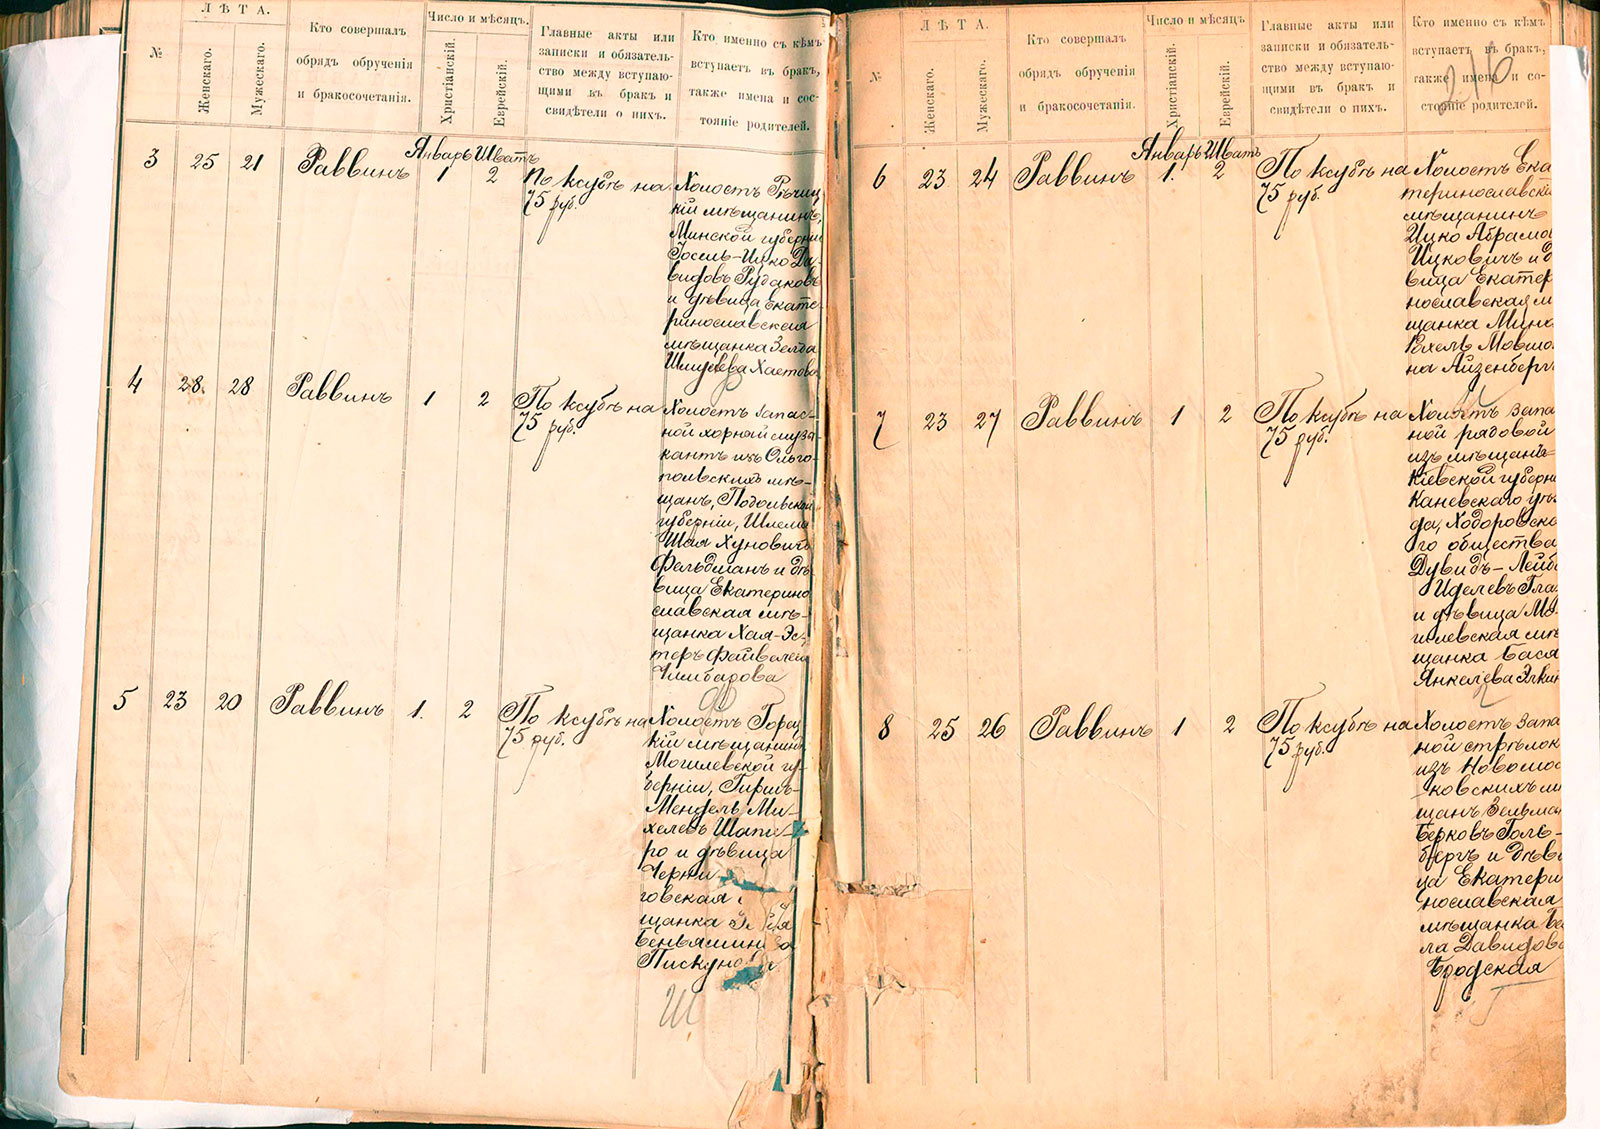 ЛѢТА.
№
Женскаго.
Мужескаго.
Кто совершалъ
обрядъ обрученія
и бракосочетанія.
Число и мѣсяцъ.
Христіанскій.
Еврейскій.
Главные акты или
записки и обязатель-
ство между вступаю-
щими въ бракъ и
свидѣтели о нихъ.
Кто именно съ кѣмъ
вступаетъ въ бракъ,
также имена и сос-
тояніе родителей.
3 25 21 Раввинъ Январь 1 Шватъ 2
По ксубѣ на
75 руб.
Холостъ Рѣчиц
кій мѣщанинъ,
Минской губерніи
Іосель-Ицко Да-
видовъ Рудаковъ
и дѣвица Екате-
ринославская
мѣщанка Зелда
Шмуева Хаетова
4 28. 28 Раввинъ 1 2
По ксубѣ на
75 руб.
Холостъ запас-
ной хорный музы-
кантъ изъ Ольго-
польскихъ мѣ-
щанъ, Подольской
губерніи, Шлема
Шая Хуновичъ
Фельдманъ и дѣ-
вица Екатерино
славская мѣ-
щанка Хая-Эс-
теръ Файвелева
Чимбарова
5 23 20 Раввинъ 1. 2
По ксубѣ на
75 руб.
Холостъ Горец
кій мѣщанинъ
Могилевской гу-
берніи, Гиршъ-
Мендель Ми-
хелевъ Шапи-
ро и дѣвица
Черни
говская
щанка
Беньямин
Пискуно
Ш
ЛѢТА.
№
Женскаго.
Мужескаго.
Кто совершалъ
обрядъ обрученія
и бракосочетанія.
Число и мѣсяцъ
Христіанскій.
Еврейскій.
Главные акты или
записки и обязатель-
ство между вступаю-
щими въ бракъ и
свидѣтели о нихъ.
Кто именно съ кѣмъ
вступаетъ въ бракъ,
также имена и со-
стояніе родителей.
6 23 24 Раввинъ Январь 1. Шватъ 2
По ксубѣ на
75 руб.
Холостъ Ека
теринославскі
мѣщанинъ
Ицко Абрамо
Ицковичъ и д
вица Екатер
нославская м
щанка Мина
Рхель Мовшо
на Айзенбергъ
7 23 27 Раввинъ 1 2
По ксубѣ на
75 руб.
Холостъ запа
ной рядовой
изъ мѣщанъ
Кіевской губерн
Каневскаго уѣз
да, Ходоровска
го общества
Дувидъ-Лейб
Иделевъ Гла
и дѣвица Мо-
гилевская мѣ
щанка Бася
Янкелева Элькин
8 25 26 Раввинъ 1 2
По ксубѣ на
75 руб.
Холостъ запа
ной стрѣлок
изъ Новомос
ковскихъ м
щанъ Зельман
Берковъ Голь-
бергъ и дѣв
ца Екатери
нославская
мѣщанка Бе
ла Давидова
Бродская